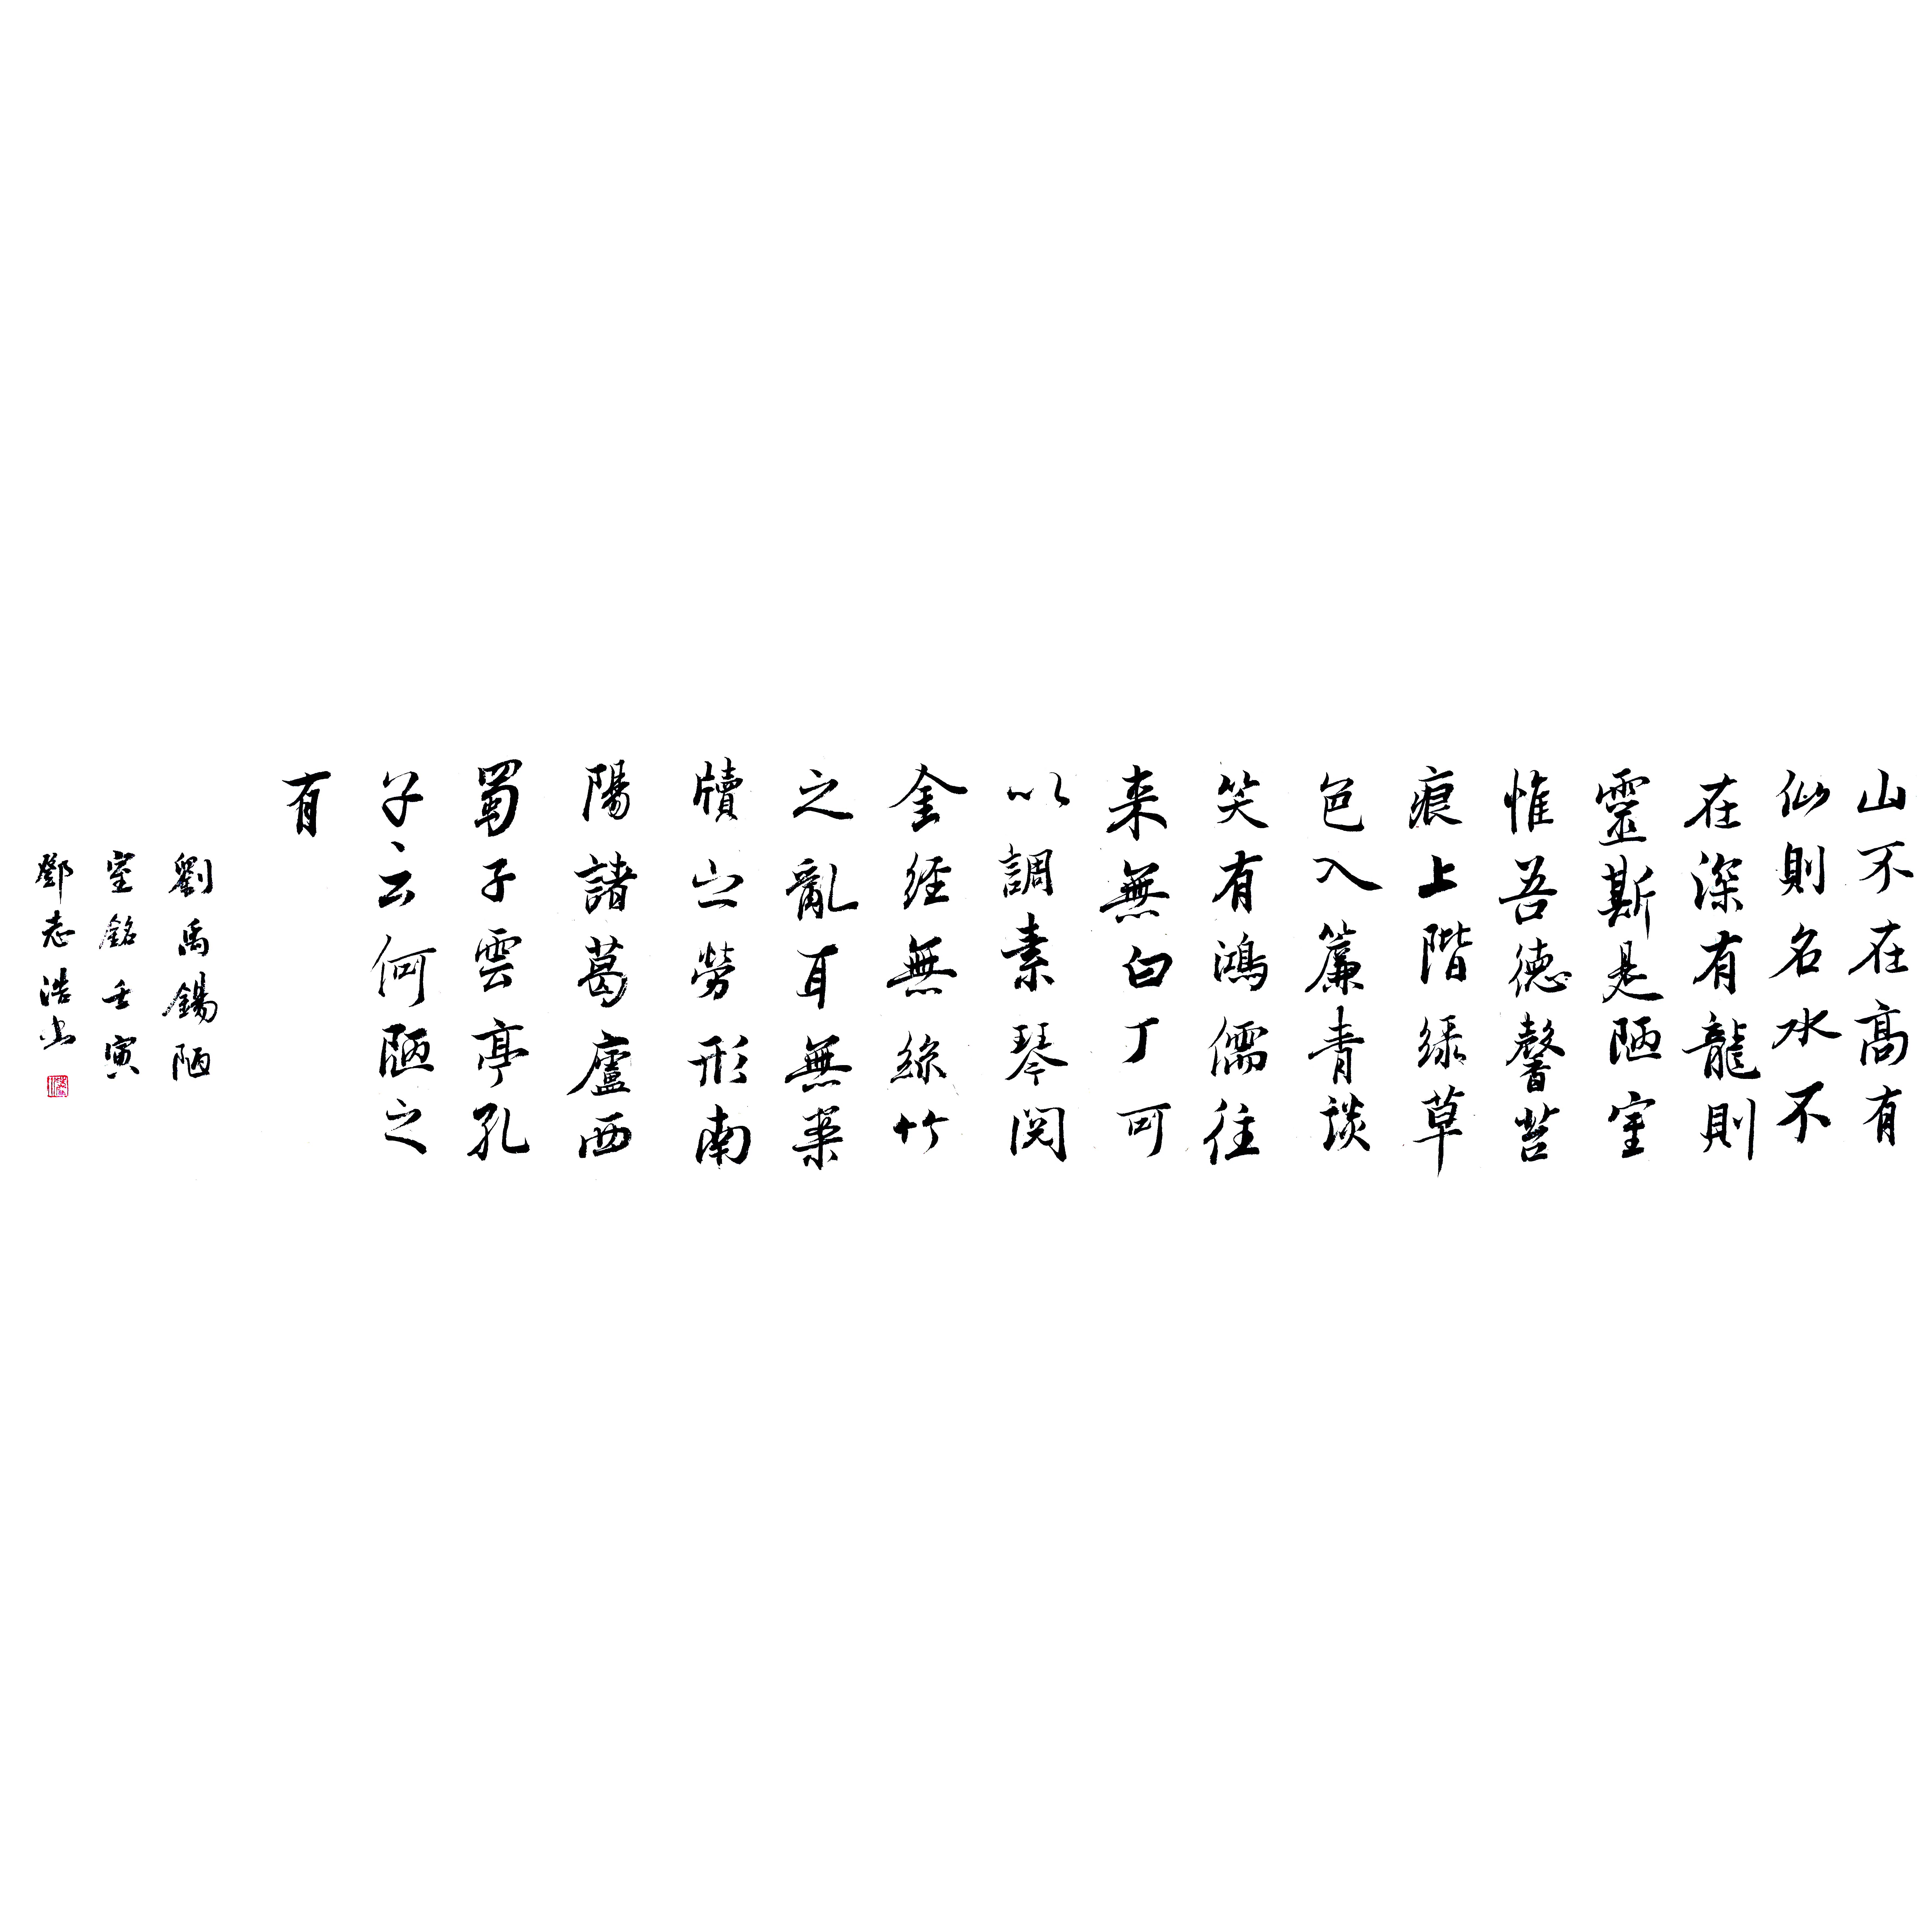 山不在高有
仙則名水不
在深有龍則
靈斯是陋室
惟吾德馨苔
痕上階緑草
色入簾青談
笑有鴻儒往
来無白丁可
以調素琴閱
金經無絲竹
之亂耳無案
牘之勞形南
陽諸葛廬西
蜀子雲亭孔
子云何陋之
有
劉禹錫陋
室銘壬寅
鄧志浩书